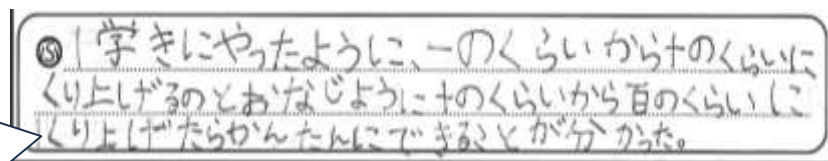 ㋛1学きにやったように、一のくらいから十のくらいに
くり上げるのとおなじように十のくらいから百のくらいに
くり上げたらかんたんにできることが分かった。